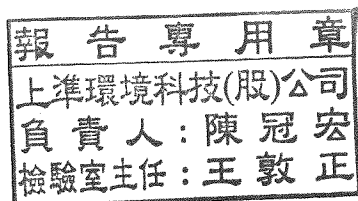 報告專用章
上準環境科技(股)公司
負責人:陳冠宏
檢驗室主任:王敦正